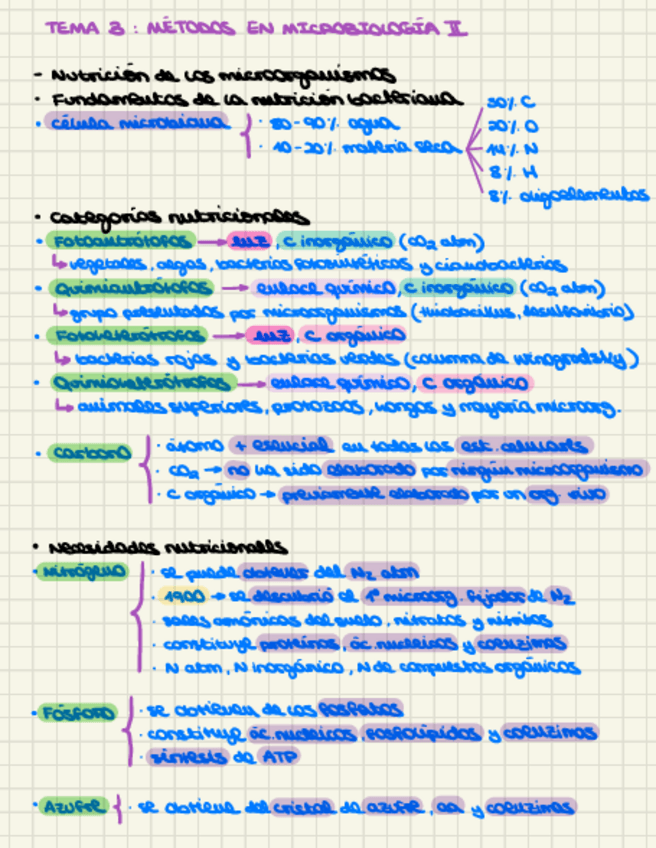 TEMA 3 : MÉTODOS EN MICROBIOLOGÍA II
- Nutrición de los microorganismos
• Fundamentos de la nutrición bacteriana
• célula microbiana { · 80-90% agua
· 10-20% materia seca
50% C
20% O
14% N
8% H
8% oligoelementos
• Categorías nutricionales
• Fotoautótrofos → luz, C inorgánico (CO2 atm)
↳ vegetales, algas, bacterias fotosintéticas y cianobacterias
• Quimioautótrofos → enlace químico, C inorgánico (CO2 atm)
↳ grupo por microorganismos (thiobacillus, desulfovibrio)
• Fotoheterótrofos → luz, C orgánico
↳ bacterias rojas y bacterias verdes (columna de winogradsky)
• Quimioheterótrofos → enlace químico, C orgánico
↳ animales superiores, protozoos, hongos y mayoría microorg.
• Carbono { · átomo + esencial en todas las est. celulares
· CO2 → no ha sido elaborado por ningún microorganismo
· C orgánico → previamente elaborado por un org. vivo
• Necesidades nutricionales
• Nitrógeno { · se puede obtener del N2 atm
· 1900 → se descubrió el 1º microorg. fijador de N2
· sales amónicas del suelo, nitratos y nitritos
· constituye proteínas, ác. nucleicos y coenzimas
· N atm, N inorgánico, N de compuestos orgánicos
• Fósforo { · se obtiene de los fosfatos
· constituye ác. nucleicos, fosfolípidos y coenzimas
· síntesis de ATP
• Azufre { · se obtiene del cristal de azufre, aa y coenzimas